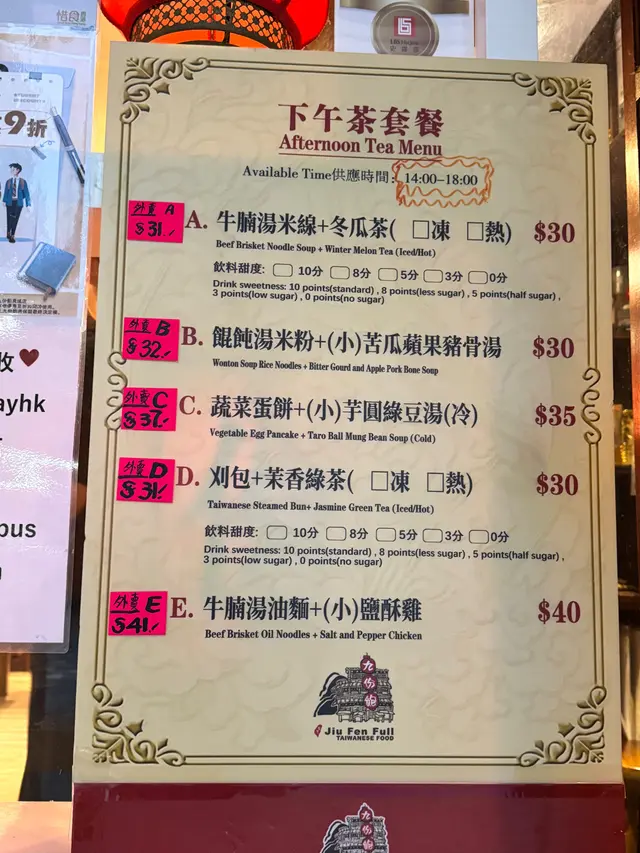 惜食
LBS Hygiene
9折
下午茶套餐
Afternoon Tea Menu
Available Time供應時間：14:00–18:00
外賣 A
$31.-
A. 牛腩湯米線+冬瓜茶( □凍 □熱) $30
Beef Brisket Noodle Soup + Winter Melon Tea (Iced/Hot)
飲料甜度: 10分 8分 5分 3分 0分
Drink sweetness: 10 points(standard) , 8 points(less sugar) , 5 points(half sugar) ,
3 points(low sugar) , 0 points(no sugar)
外賣 B
$32.-
B. 餛飩湯米粉+(小)苦瓜蘋果豬骨湯 $30
Wonton Soup Rice Noodles + Bitter Gourd and Apple Pork Bone Soup
外賣 C
$37.-
C. 蔬菜蛋餅+(小)芋圓綠豆湯(冷) $35
Vegetable Egg Pancake + Taro Ball Mung Bean Soup (Cold)
外賣 D
$31.-
D. 刈包+茉香綠茶( □凍 □熱) $30
Taiwanese Steamed Bun+ Jasmine Green Tea (Iced/Hot)
飲料甜度: 10分 8分 5分 3分 0分
Drink sweetness: 10 points(standard) , 8 points(less sugar) , 5 points(half sugar) ,
3 points(low sugar) , 0 points(no sugar)
外賣 E
$41.-
E. 牛腩湯油麵+(小)鹽酥雞 $40
Beef Brisket Oil Noodles + Salt and Pepper Chicken
九份飽
Jiu Fen Full
TAIWANESE FOOD
收
ayhk
pus
九份飽